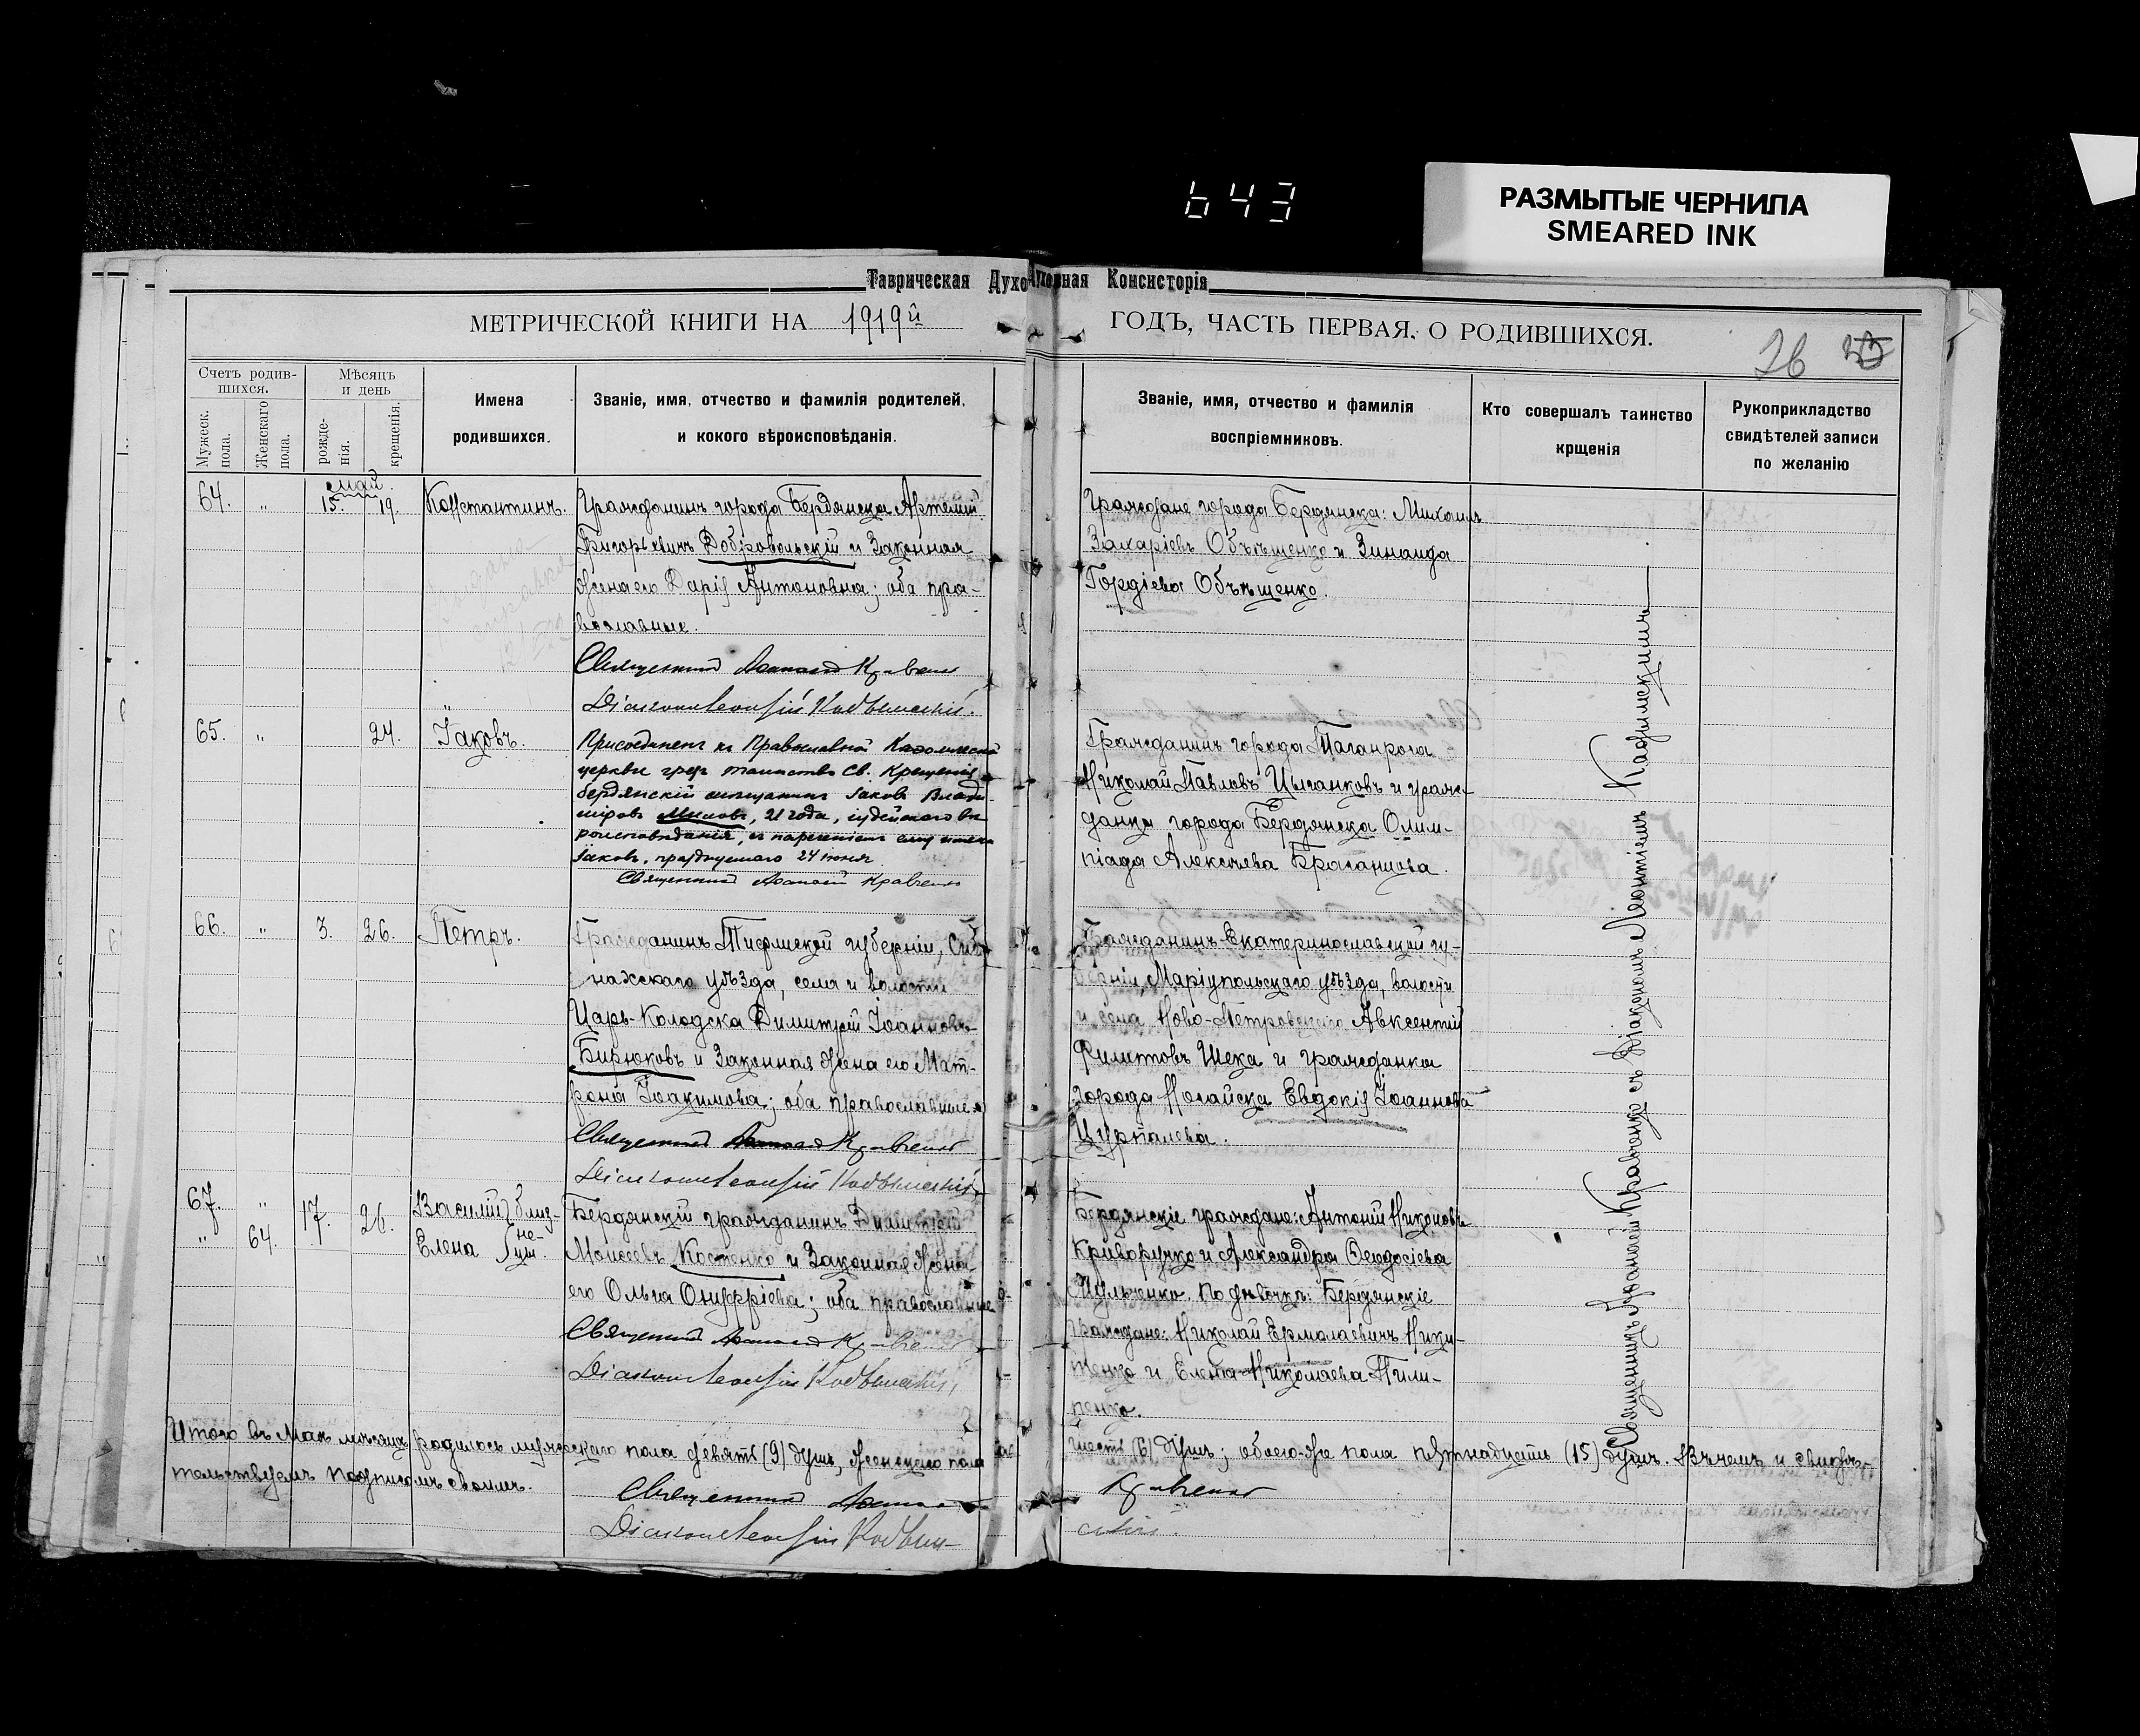 643
РАЗМЫТЫЕ ЧЕРНИЛА
SMEARED INK
Таврическая Духовная Консисторія
МЕТРИЧЕСКОЙ КНИГИ НА 1919й ГОДЪ, ЧАСТЬ ПЕРВАЯ, О РОДИВШИХСЯ.
26
Счетъ родив-
шихся.
Мужеск.
пола.
Женскаго
пола.
Мѣсяцъ
и день
рожде-
нія.
крещенія.
Имена
родившихся.
Званіе, имя, отчество и фамилія родителей,
и кокого вѣроисповѣданія.
Званіе, имя, отчество и фамилія
воспріемниковъ.
Кто совершалъ таинство
крщенія
Рукоприкладство
свидѣтелей записи
по желанію
май.
64. " 15. 19. Константинъ.
Гражданинъ города Бердянска Артемій
Григорьевичъ Добровольскій и законная
жена его Дарія Антоновна; оба пра-
вославные.
Священникъ Кравченко
Діаконъ Леонтій
Граждане города Бердянска: Михаилъ
Захаріевъ Объѣщенко и Зинаида
Гордіева Объѣщенко.
65. " 24. Іаковъ.
Присоединенъ къ Православной Каѳолической
церкви чрезъ таинство Св. Крещенія
бердянскій мѣщанинъ Іаковъ Влади-
міровъ 21 года, іудейскаго вѣ-
роисповѣданія, съ нареченіемъ ему имени
Іаковъ, празднуемаго 24 іюня
Священникъ Аѳанасій Кравченко
Гражданинъ города Таганрога
Николай Павловъ Цыганковъ и граж-
данка города Бердянска Олим-
піада Алексѣева Браганцова.
66. " 3. 26. Петръ.
Гражданинъ Тифлиской губерніи, Сиг-
нахскаго уѣзда, села и волости
Царь-Колодска Димитрій Іоанновъ
Бирюковъ и законная жена его Мат-
рона Іоакимова; оба православные
Священникъ Кравченко
Діаконъ Леонтій
Гражданинъ Екатеринославской гу-
берніи, Маріупольскаго уѣзда, волости
и села Ново-Петровскаго Авксентій
Филиповъ Шека и гражданка
города Ногайска Евдокія Іоаннова
Цурпалева.
67. " 17. 26. Василій близ-
" 64. Елена не-
цы.
Бердянскій гражданинъ Димитрій
Моисеевъ Костенко и законная жена
его Ольга Онуфріева; оба православные
Священникъ Кравченко
Діаконъ Леонтій
Бердянскіе граждане: Антоній Никоновъ
Криворучко и Александра Ѳеодосіева
По дѣвочкѣ: Бердянскіе
граждане: Николай Ермолаевичъ Ники-
тенко и Елена Николаева Пили-
пенко.
Священникъ Аѳанасій Кравченко съ діакономъ Леонтіемъ
Итого въ Маѣ мѣсяцѣ родилось мужескаго пола девять (9) душъ, женскаго пола шесть (6) душъ; обоего же пола пятнадцать (15) душъ. Въ чемъ и свидѣ-
тельствуемъ подписомъ своимъ.
Священникъ Кравченко
Діаконъ Леонтій